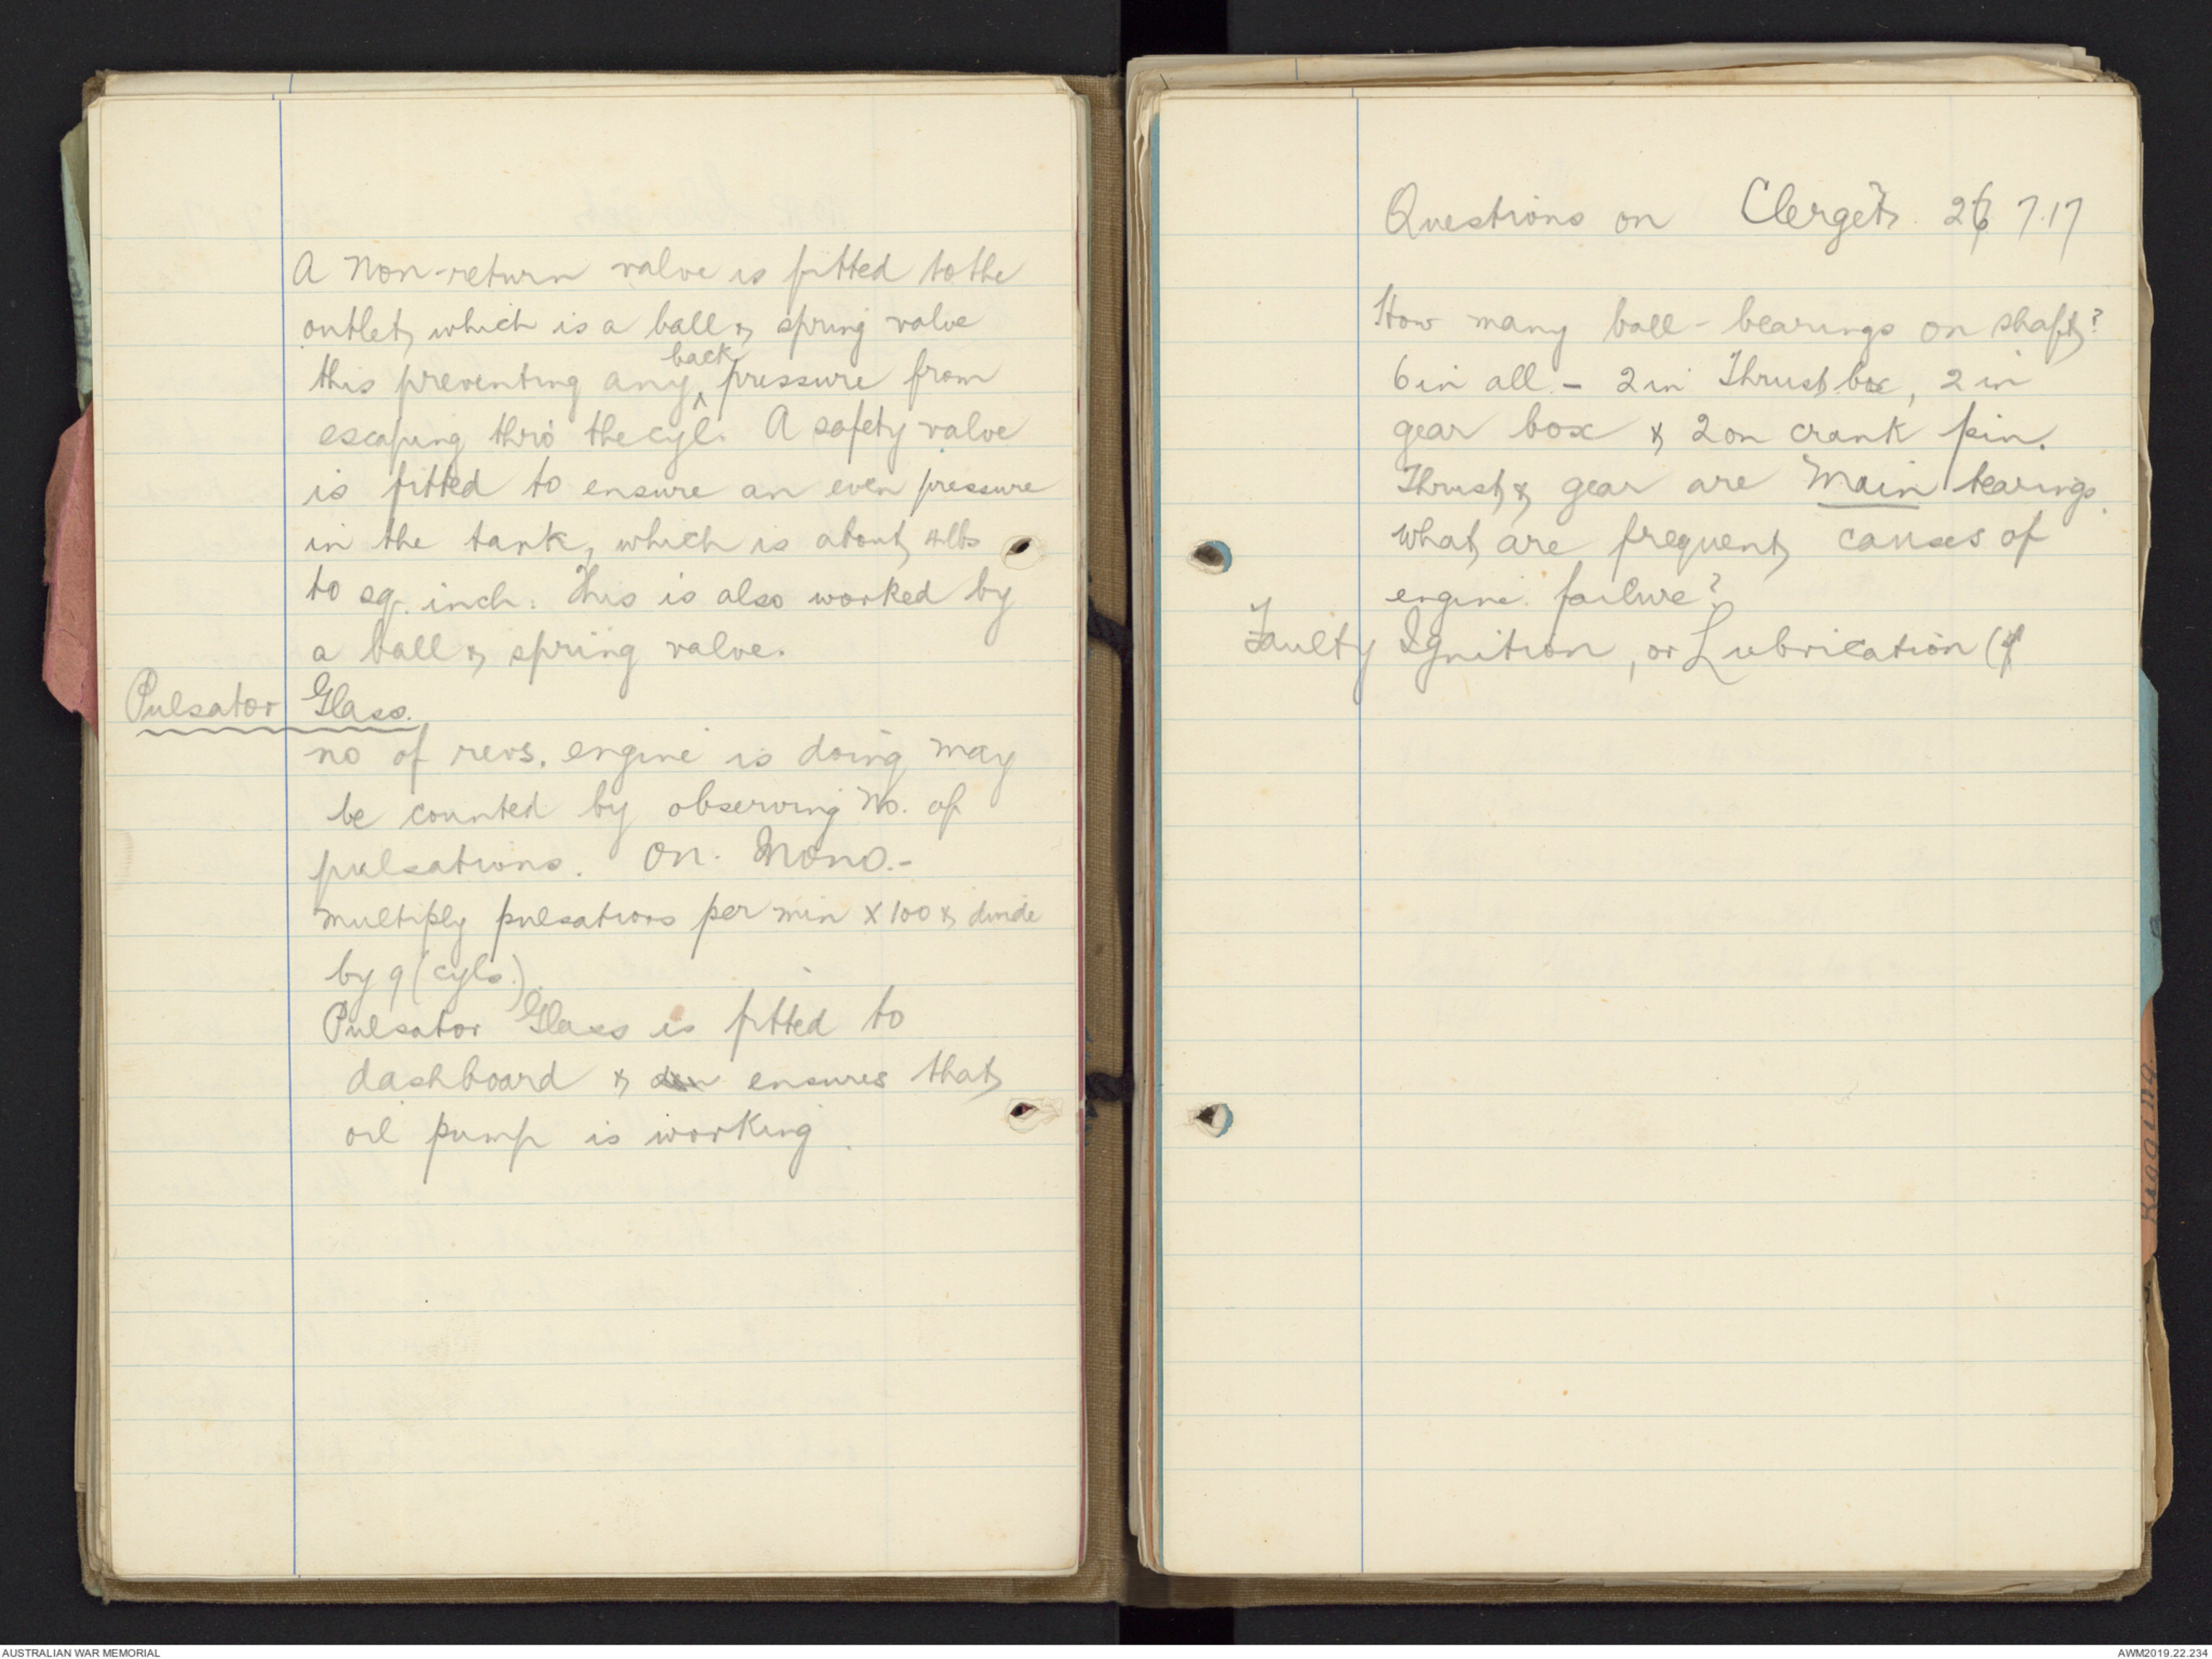 A non-return valve is fitted to the
outlet, which is a ball & spring valve
this preventing any back pressure from
escaping thro' the cyl. A safety valve
is fitted to ensure an even pressure
in the tank, which is about 4lbs
to sq. inch. This is also worked by
a ball & spring valve.
Pulsator Glass.
no of revs. engine is doing may
be counted by observing No. of
pulsations. On. Mono.-
multiply pulsations per min X 100 & divide
by 9 (cyls.)
Pulsator Glass is fitted to
dashboard & ensures that
oil pump is working.
Questions on Clerget. 26 7.17
How many ball-bearings on shaft?
6 in all - 2 in Thrust box, 2 in
gear box & 2 on crank pin.
Thrust & gear are Main bearings.
What are frequent causes of
engine failure?
Faulty Ignition, or Lubrication (if
Rigging.
AUSTRALIAN WAR MEMORIAL
AWM2019.22.234